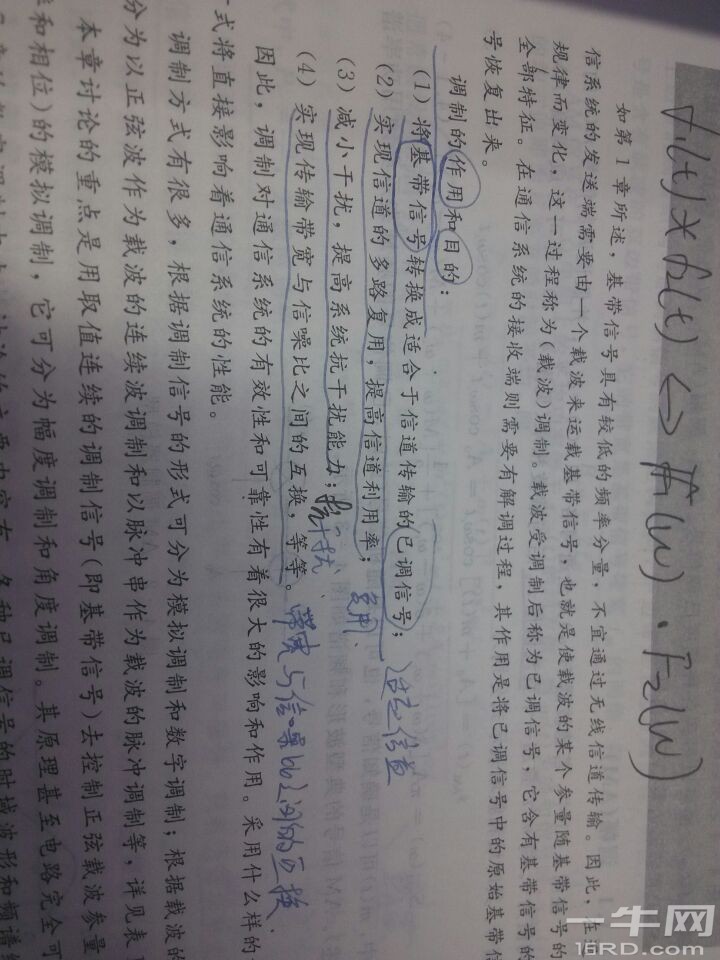 f₁(t) * f₂(t) <-> F₁(w) · F₂(w)
如第 1 章所述，基带信号具有较低的频率分量，不宜通过无线信道传输。因此，在
信系统的发送端需要由一个载波来运载基带信号，也就是使载波的某个参量随基带信号的
规律而变化，这一过程称为(载波)调制。载波受调制后称为已调信号，它含有基带信号的
全部特征。在通信系统的接收端则需要有解调过程，其作用是将已调信号中的原始基带信
号恢复出来。
调制的作用和目的：
(1) 将基带信号转换成适合于信道传输的已调信号； 适应信道
(2) 实现信道的多路复用，提高信道利用率； 复用、
(3) 减小干扰，提高系统抗干扰能力； 抗干扰、
(4) 实现传输带宽与信噪比之间的互换，等等。 带宽与信噪比之间的互换
因此，调制对通信系统的有效性和可靠性有着很大的影响和作用。采用什么样的
式将直接影响着通信系统的性能。
调制方式有很多，根据调制信号的形式可分为模拟调制和数字调制；根据载波的
分为以正弦波作为载波的连续波调制和以脉冲串作为载波的脉冲调制等，详见表
本章讨论的重点是用取值连续的调制信号(即基带信号)去控制正弦载波参量
和相位)的模拟调制，它可分为幅度调制和角度调制。其原理甚至电路完全可
各种已调信号的时域波形和频谱
一牛网
16RD.COM